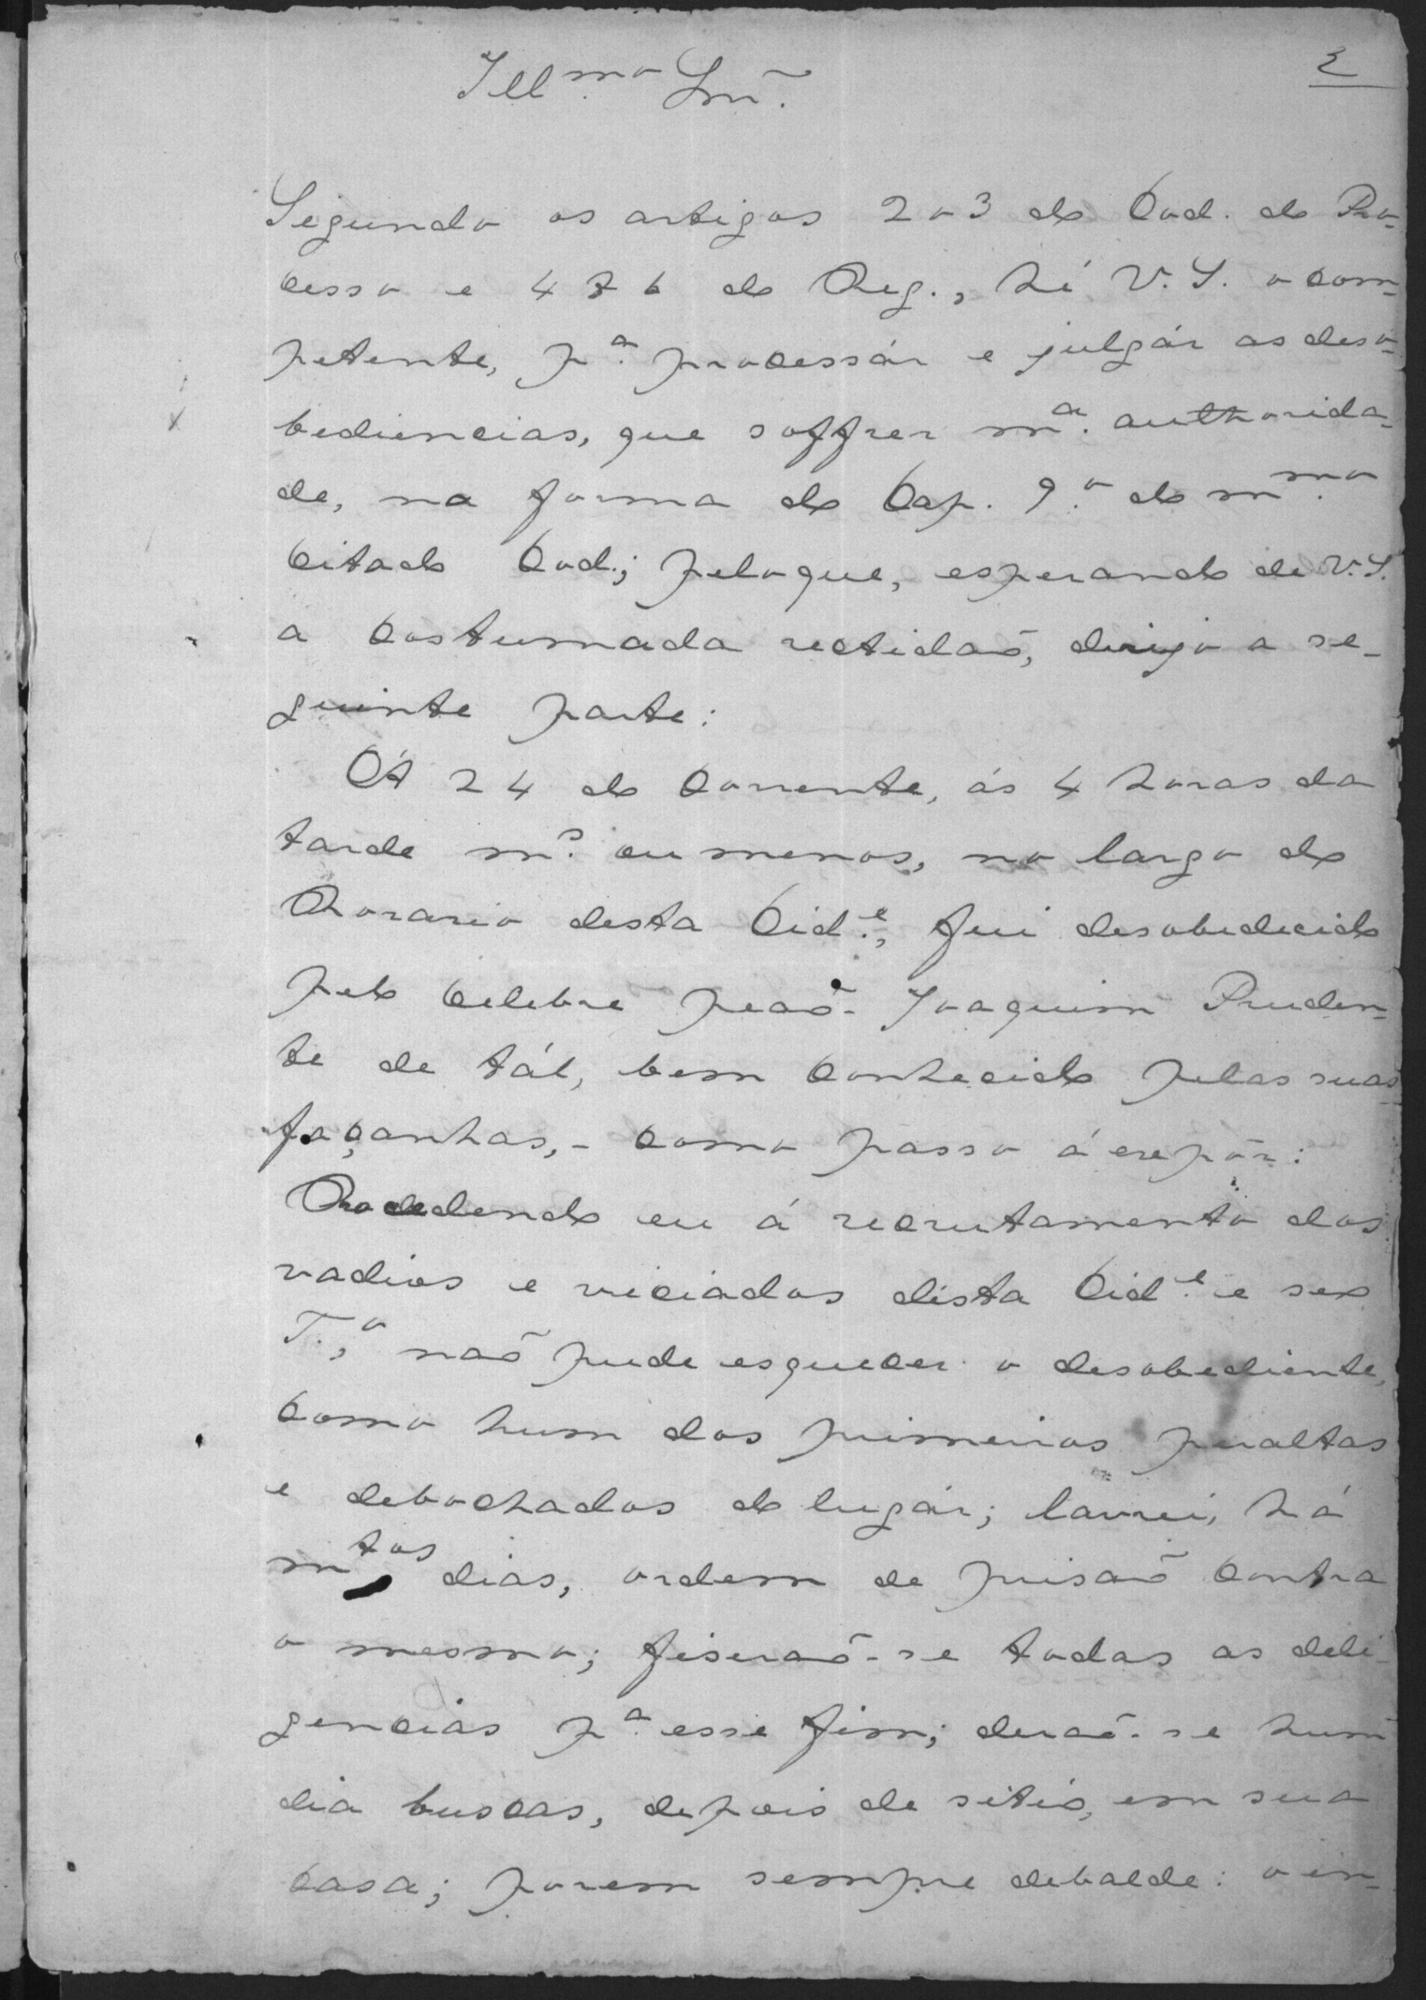 2
Ill.mo Snr.
Segundo os artigos 203 do Cod. do Pro-
cesso e 476 do Reg., hé V. S. o com-
petente, p.a processár e julgár as deso-
bediencias, que soffrer m.a authorida-
de, na forma do Cap. 9.o do m.mo
Citado Cod.; pelo que, esperando de V. S.
a Costumada rectidaõ, dirijo a se-
guinte parte:
Á 24 do Corrente, ás 4 horas da
tarde m.s ou menos, no largo do
Rorario desta Cid.e, fui desobedecido
pelo Celebre peaõ - Joaquim Pruden-
te de tál, bem Conhecido pelas suas
façanhas, - Como passo á expôr:
Procedendo eu á recrutamento dos
vadios e viciados desta Cid.e e seo
T.o, naõ pude esquecer o desobediente,
Como hum dos primeiros peraltas
e debochados do lugár; lavrei, há
m.tos dias, ordem de prisaõ Contra
o mesmo; fiseraõ-se todas as deli-
gencias p.a esse fim; deraõ-se hum
dia buscas, depois de sitio, em sua
Casa; porem sempre debalde: o in-